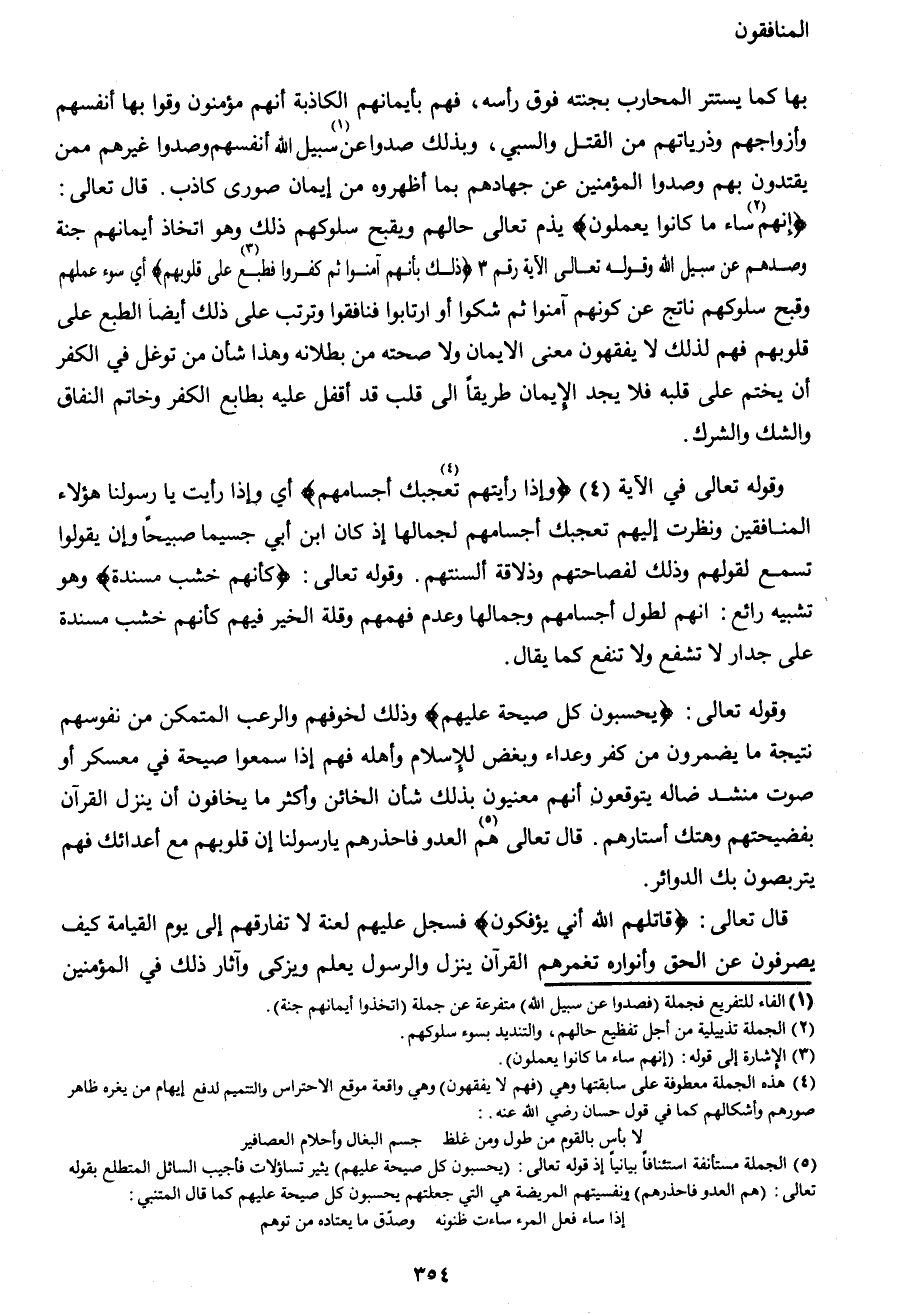 المنافقون
بها كما يستتر المحارب بجنته فوق رأسه، فهم بأيمانهم الكاذبة أنهم مؤمنون وقوا بها أنفسهم
وأزواجهم وذرياتهم من القتل والسبي، وبذلك صدوا عن (١) سبيل الله أنفسهم وصدوا غيرهم ممن
يقتدون بهم وصدوا المؤمنين عن جهادهم بما أظهروه من إيمان صورى كاذب. قال تعالى:
﴿إنهم (٢) ساء ما كانوا يعملون﴾ يذم تعالى حالهم ويقبح سلوكهم ذلك وهو اتخاذ أيمانهم جنة
وصدهم عن سبيل الله وقوله تعالى الآية رقم ٣ ﴿ذلك بأنهم آمنوا ثم كفروا فطبع (٣) على قلوبهم﴾ أي سوء عملهم
وقبح سلوكهم ناتج عن كونهم آمنوا ثم شكوا أو ارتابوا فنافقوا وترتب على ذلك أيضاً الطبع على
قلوبهم فهم لذلك لا يفقهون معنى الايمان ولا صحته من بطلانه وهذا شأن من توغل في الكفر
أن يختم على قلبه فلا يجد الإيمان طريقاً الى قلب قد أقفل عليه بطابع الكفر وخاتم النفاق
والشك والشرك.
وقوله تعالى في الآية (٤) ﴿وإذا رأيتهم (٤) تعجبك أجسامهم﴾ أي وإذا رأيت يا رسولنا هؤلاء
المنافقين ونظرت إليهم تعجبك أجسامهم لجمالها إذ كان ابن أبي جسيما صبيحاً وإن يقولوا
تسمع لقولهم وذلك لفصاحتهم وذلاقة ألسنتهم. وقوله تعالى: ﴿كأنهم خشب مسندة﴾ وهو
تشبيه رائع: انهم لطول أجسامهم وجمالها وعدم فهمهم وقلة الخير فيهم كأنهم خشب مسندة
على جدار لا تشفع ولا تنفع كما يقال.
وقوله تعالى: ﴿يحسبون كل صيحة عليهم﴾ وذلك لخوفهم والرعب المتمكن من نفوسهم
نتيجة ما يضمرون من كفر وعداء وبغض للإسلام وأهله فهم إذا سمعوا صيحة في معسكر أو
صوت منشد ضاله يتوقعون أنهم معنيون بذلك شأن الخائن وأكثر ما يخافون أن ينزل القرآن
بفضيحتهم وهتك أستارهم. قال تعالى هم (٥) العدو فاحذرهم يارسولنا إن قلوبهم مع أعدائك فهم
يتربصون بك الدوائر.
قال تعالى: ﴿قاتلهم الله أني يؤفكون﴾ فسجل عليهم لعنة لا تفارقهم إلى يوم القيامة كيف
يصرفون عن الحق وأنواره تغمرهم القرآن ينزل والرسول يعلم ويزكى وآثار ذلك في المؤمنين
(١) الفاء للتفريع فجملة (فصدوا عن سبيل الله) متفرعة عن جملة (اتخذوا أيمانهم جنة).
(٢) الجملة تذييلية من أجل تفظيع حالهم، والتنديد بسوء سلوكهم.
(٣) الإشارة إلى قوله: (إنهم ساء ما كانوا يعملون).
(٤) هذه الجملة معطوفة على سابقتها وهي (فهم لا يفقهون) وهي واقعة موقع الاحتراس والتتميم لدفع إيهام من يغره ظاهر
صورهم وأشكالهم كما في قول حسان رضي الله عنه. :
لا بأس بالقوم من طول ومن غلظ جسم البغال وأحلام العصافير
(٥) الجملة مستأنفة استئنافاً بيانياً إذ قوله تعالى: (يحسبون كل صيحة عليهم) يثير تساؤلات فأجيب السائل المتطلع بقوله
تعالى: (هم العدو فاحذرهم) ونفسيتهم المريضة هي التي جعلتهم يحسبون كل صيحة عليهم كما قال المتنبي:
إذا ساء فعل المرء ساءت ظنونه وصدّق ما يعتاده من توهم
٣٥٤